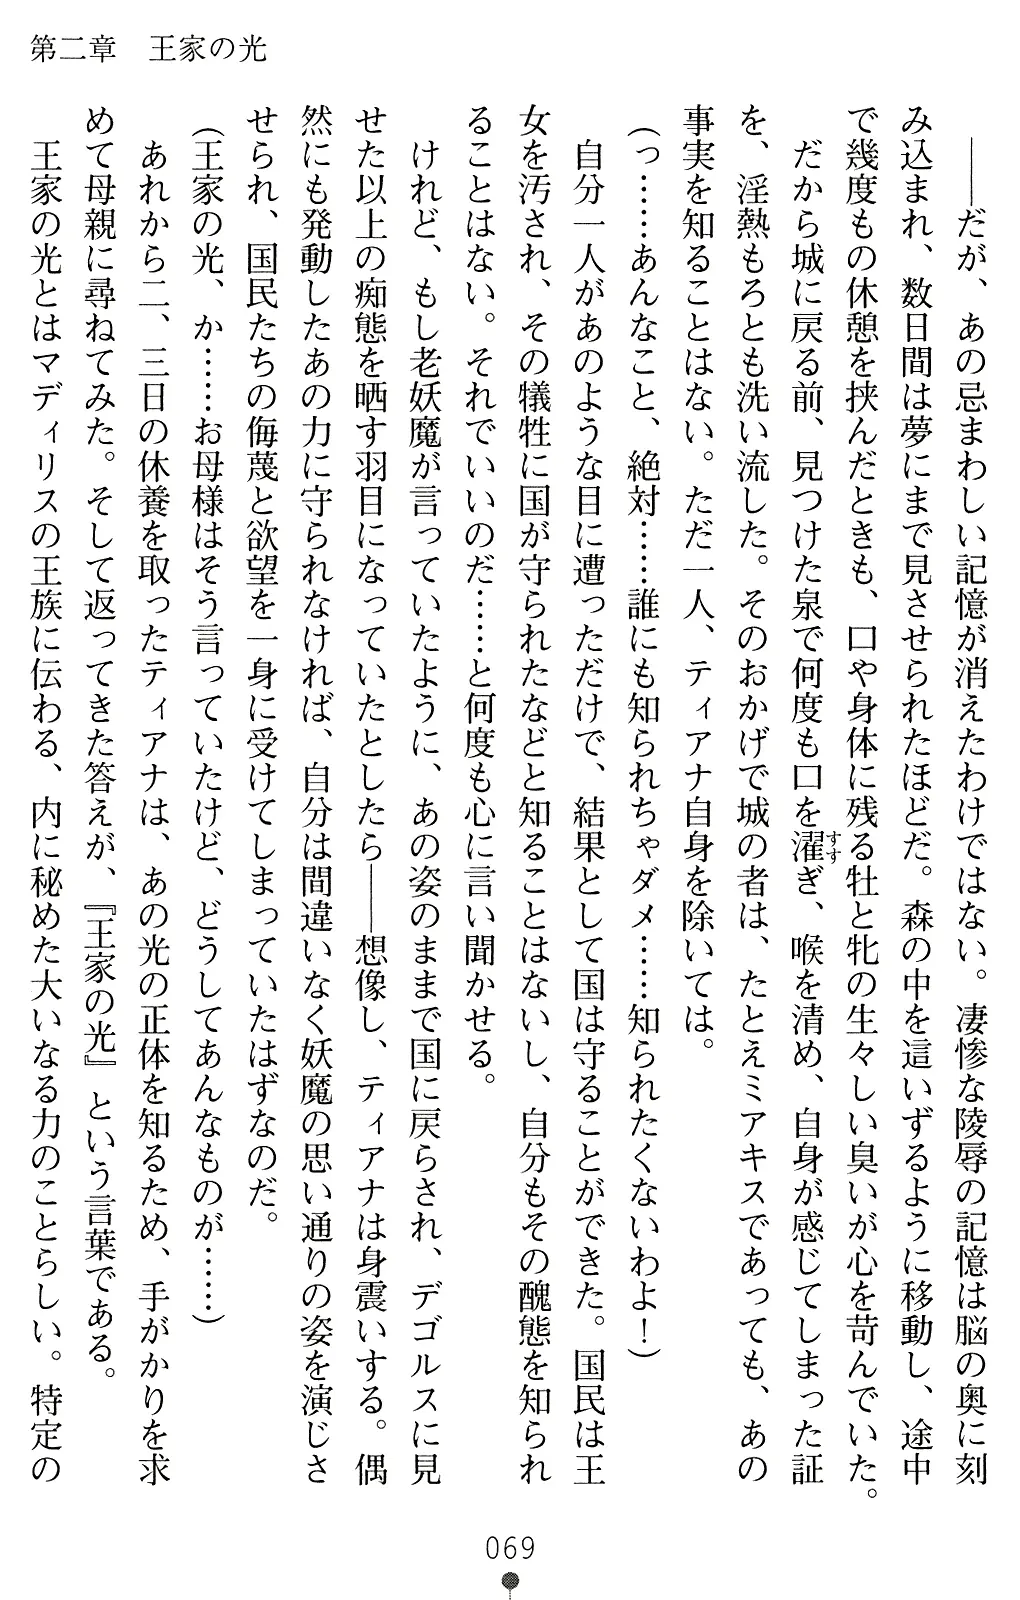 第二章　王家の光
　――だが、あの忌まわしい記憶が消えたわけではない。凄惨な陵辱の記憶は脳の奥に刻
み込まれ、数日間は夢にまで見させられたほどだ。森の中を這いずるように移動し、途中
で幾度もの休憩を挟んだときも、口や身体に残る牡と牝の生々しい臭いが心を苛んでいた。
　だから城に戻る前、見つけた泉で何度も口を濯ぎ、喉を清め、自身が感じてしまった証
を、淫熱もろとも洗い流した。そのおかげで城の者は、たとえミアキスであっても、あの
事実を知ることはない。ただ一人、ティアナ自身を除いては。
（っ……あんなこと、絶対……誰にも知られちゃダメ……知られたくないわよ！）
　自分一人があのような目に遭っただけで、結果として国は守ることができた。国民は王
女を汚され、その犠牲に国が守られたなどと知ることはないし、自分もその醜態を知られ
ることはない。それでいいのだ……と何度も心に言い聞かせる。
　けれど、もし老妖魔が言っていたように、あの姿のままで国に戻らされ、デゴルスに見
せた以上の痴態を晒す羽目になっていたとしたら――想像し、ティアナは身震いする。偶
然にも発動したあの力に守られなければ、自分は間違いなく妖魔の思い通りの姿を演じさ
せられ、国民たちの侮蔑と欲望を一身に受けてしまっていたはずなのだ。
（王家の光、か……お母様はそう言っていたけど、どうしてあんなものが……）
　あれから二、三日の休養を取ったティアナは、あの光の正体を知るため、手がかりを求
めて母親に尋ねてみた。そして返ってきた答えが、『王家の光』という言葉である。
　王家の光とはマディリスの王族に伝わる、内に秘めた大いなる力のことらしい。特定の
すす
069